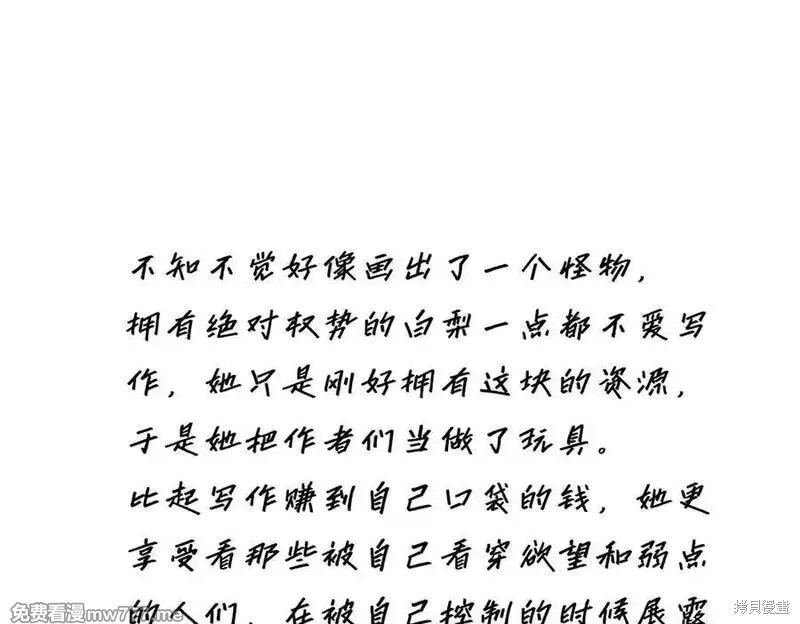 不知不觉好像画出了一个怪物，
拥有绝对权势的白梨一点都不爱写
作，她只是刚好拥有这块的资源，
于是她把作者们当做了玩具。
比起写作赚到自己口袋的钱，她更
享受看那些被自己看穿欲望和弱点
的人们，在被自己控制的时候展露
免费看漫mw777.me
拷貝漫畫